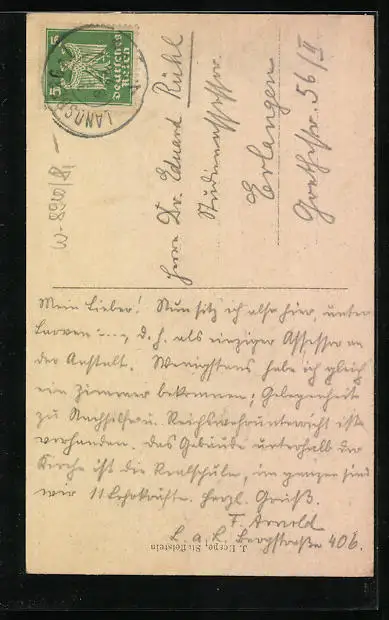 5
5
Deutsches
Reich
LANDSB
Herrn Dr. Eduard Rühl
Studienassessor
Erlangen
Goethestr. 56/II
Mein Lieber! Nun sitz ich also hier, unter
Larven ---, d. h. als einziger Assessor an
der Anstalt. Wenigstens habe ich gleich
ein Zimmer bekommen; Gelegenheit
zu Nachhilfe u. Reichswehrunterricht ist
vorhanden. Das Gebäude unterhalb der
Kirche ist die Realschule, im ganzen sind
wir 11 Lehrkräfte. Herzl. Gruß.
F. Arnold
L. a. L. Bergstraße 406.